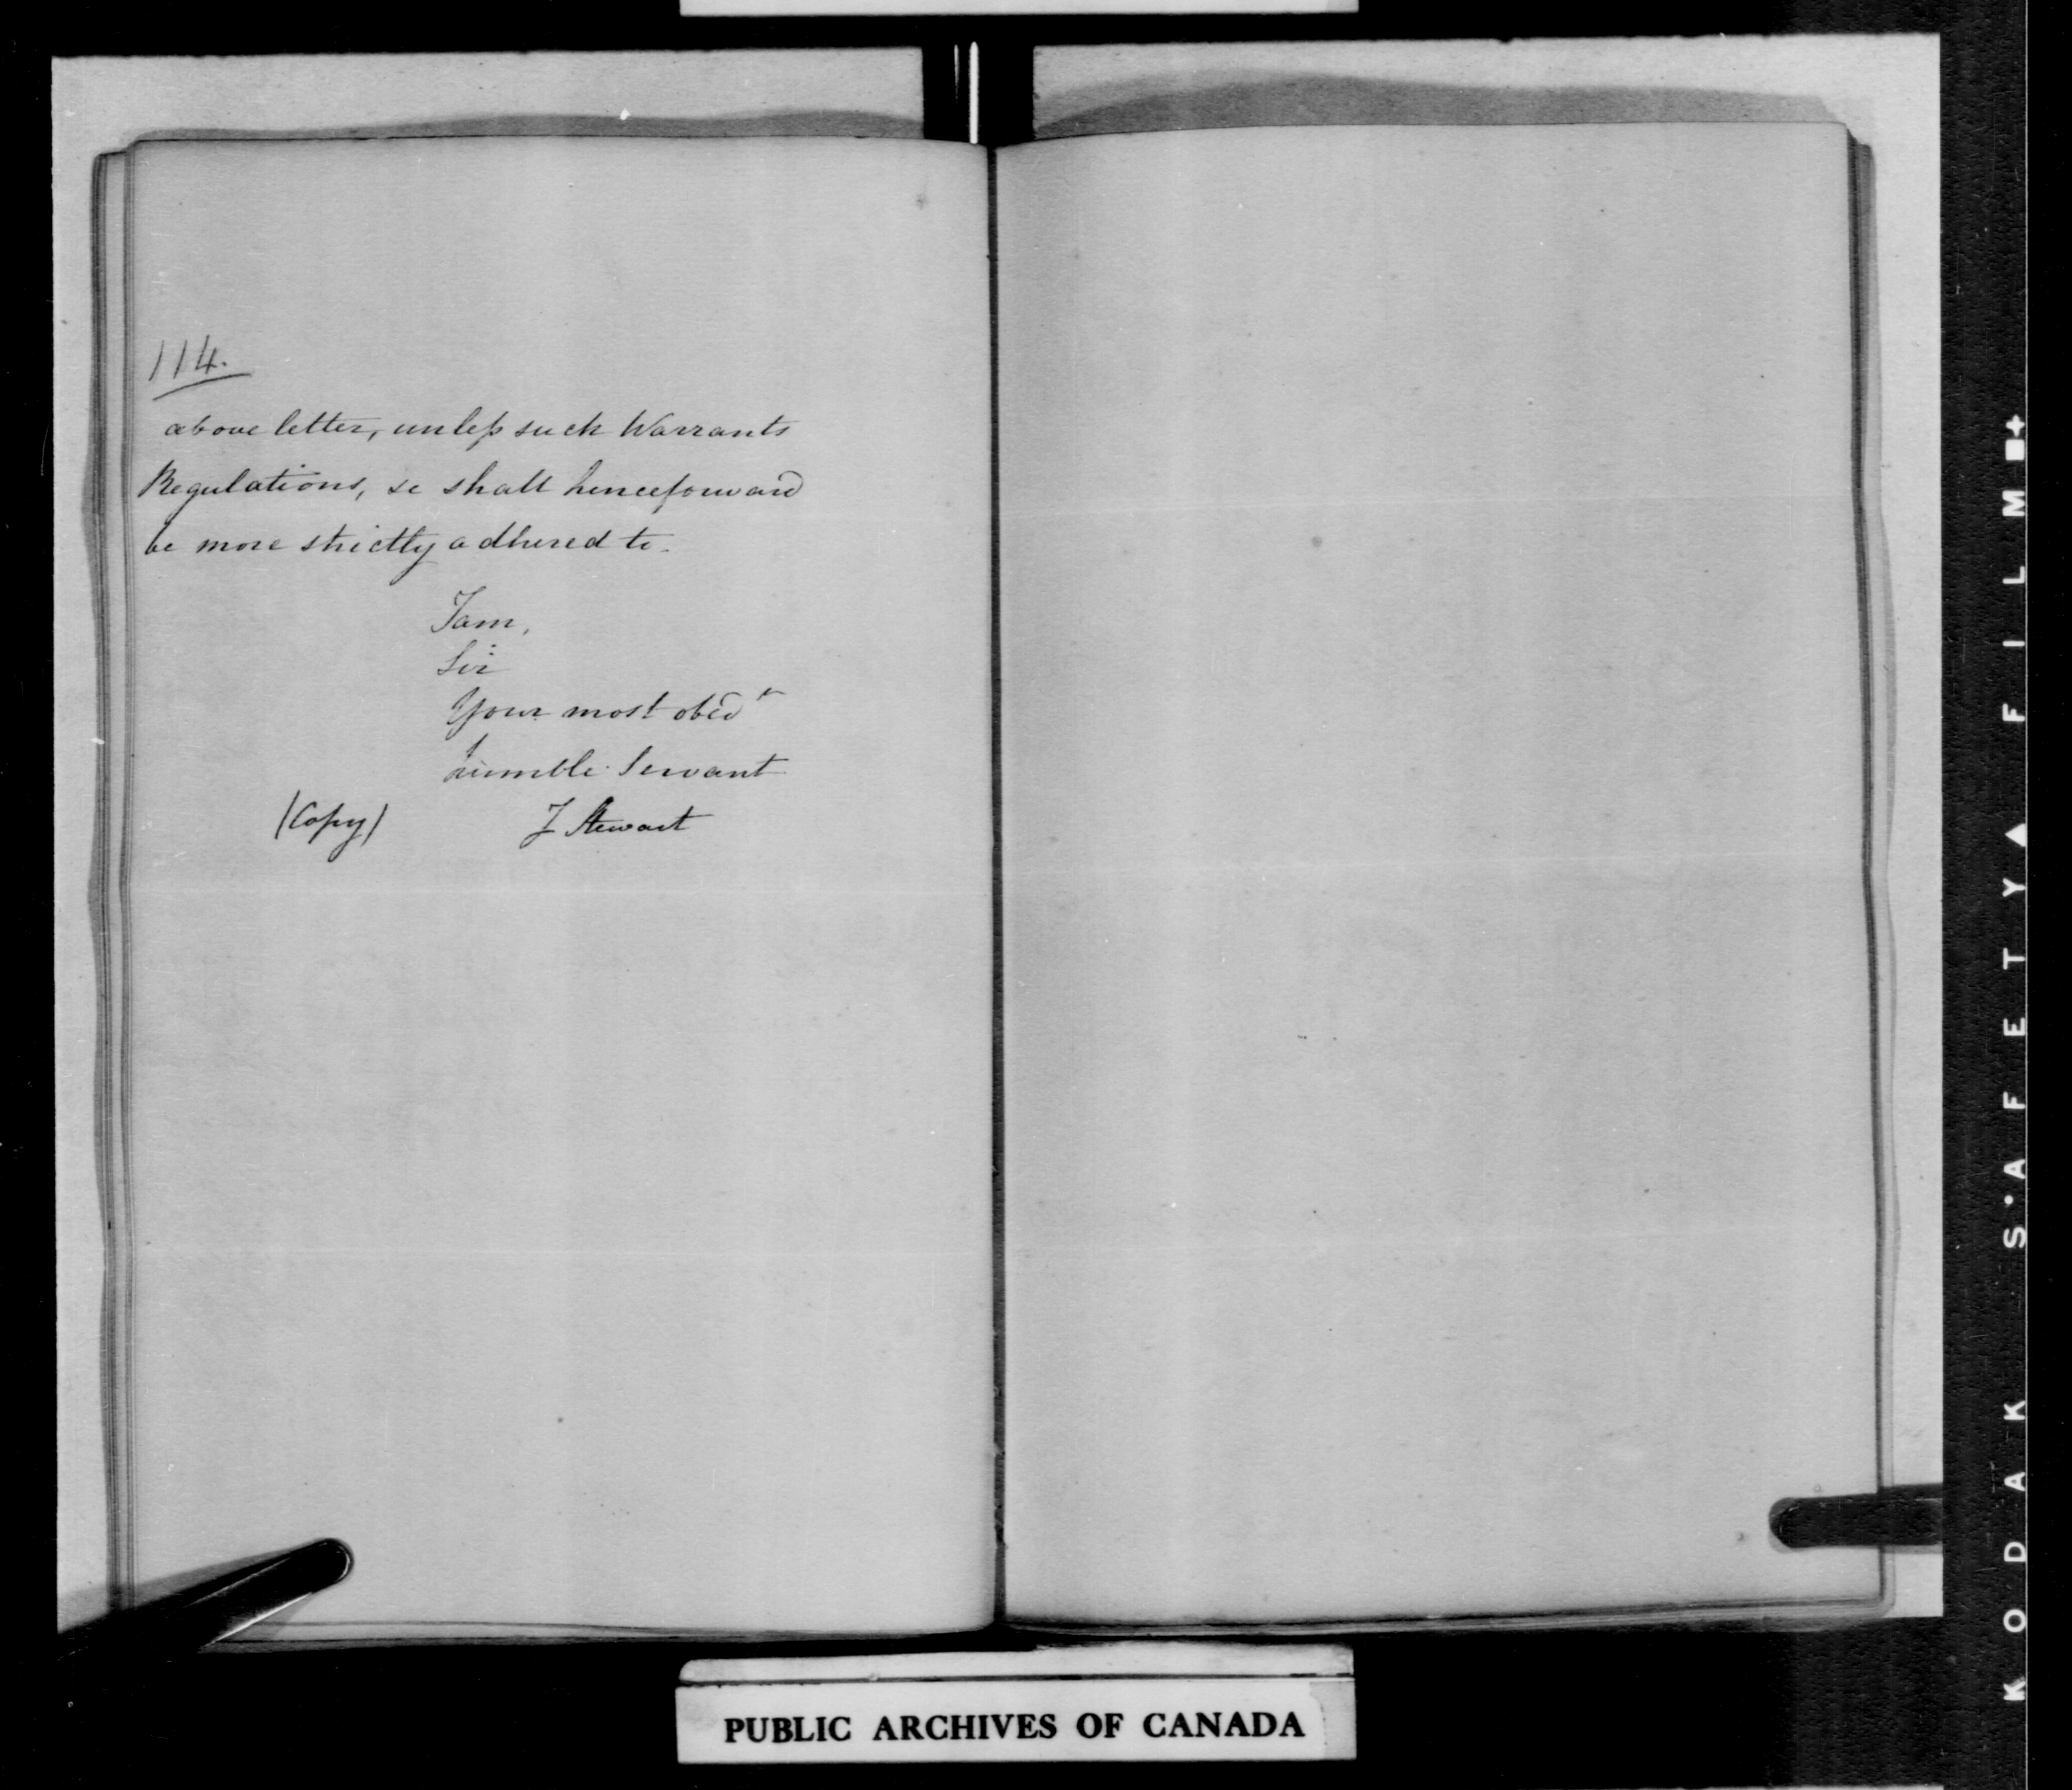 114.
above letter, unless such Warrants
Regulations, &c shall henceforward
be more strictly adhered to.
I am,
Sir
Your most obedt
humble Servant
(Copy) J Stewart
PUBLIC ARCHIVES OF CANADA
KODAK SAFETY FILM